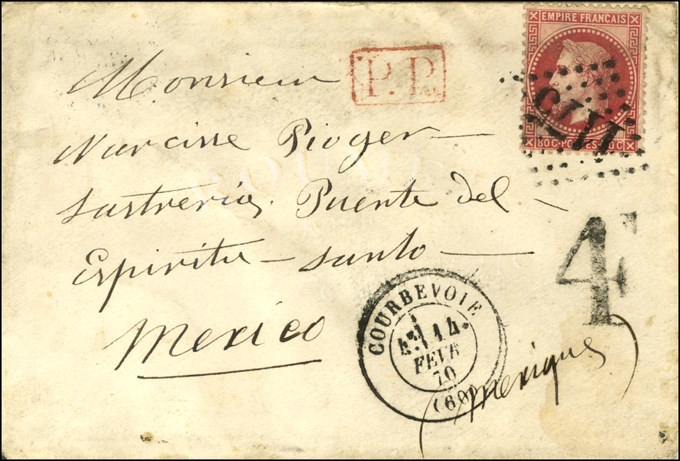 EMPIRE FRANÇAIS
Monsieur
P.P.
Narcisse Pioger
80 C POSTES 80 C
Sastreria, Puente del
Espiritu - santo
4
Mexico
COURBEVOIE
14
FEVR
70
(60)
(Mexique)